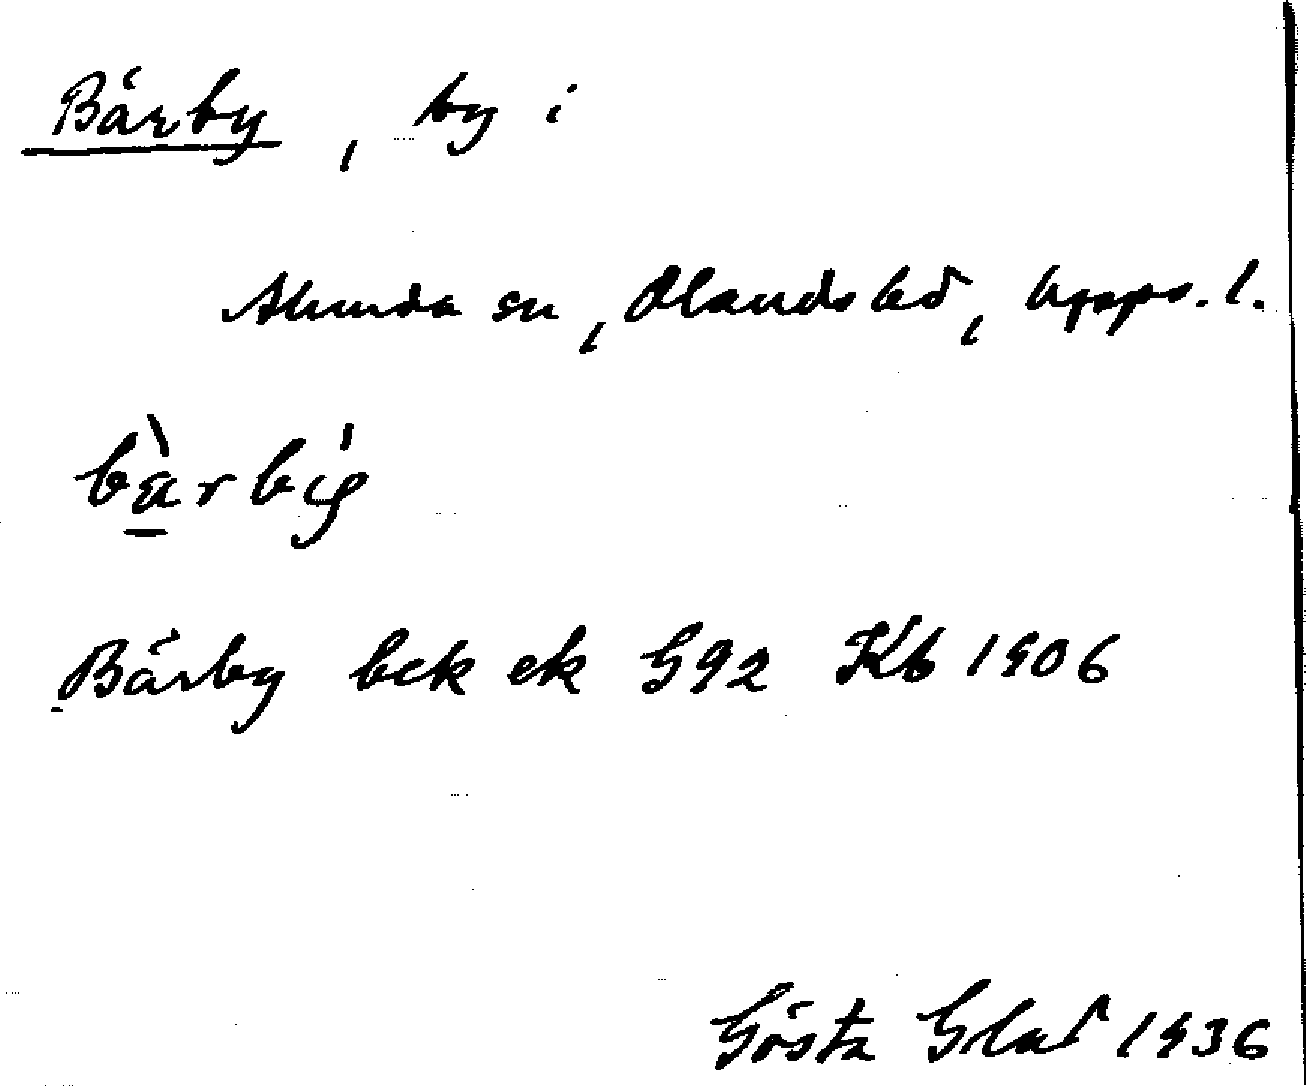 Bärby, by i
Alunda sn, Olands hd, Upps. l.
bà̠rbý
Bärby bck ek G92 Kb 1906
Gösta Glad 1936